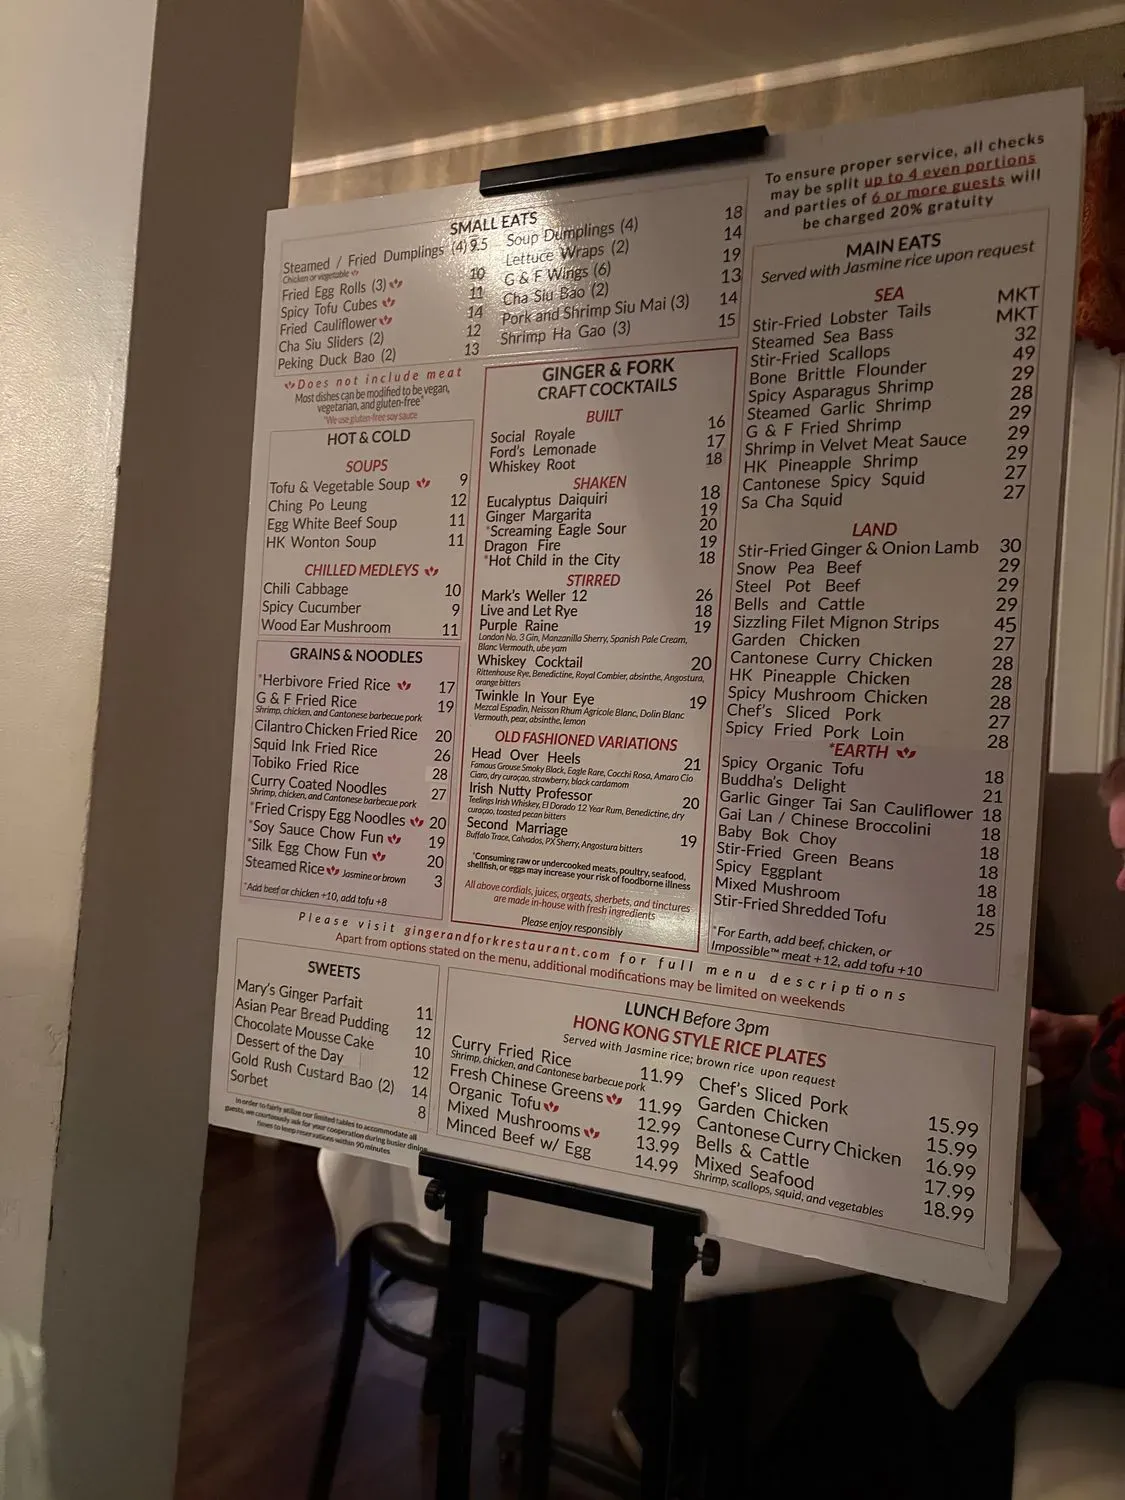 To ensure proper service, all checks
may be split up to 4 even portions
and parties of 6 or more guests will
be charged 20% gratuity
SMALL EATS
Steamed / Fried Dumplings (4) 9.5
Chicken or vegetable
Fried Egg Rolls (3) 10
Spicy Tofu Cubes 11
Fried Cauliflower 14
Cha Siu Sliders (2) 12
Peking Duck Bao (2) 13
Soup Dumplings (4) 18
Lettuce Wraps (2) 14
G & F Wings (6) 19
Cha Siu Bao (2) 13
Pork and Shrimp Siu Mai (3) 14
Shrimp Ha Gao (3) 15
Does not include meat
Most dishes can be modified to be vegan,
vegetarian, and gluten-free*
*We use gluten-free soy sauce
HOT & COLD
SOUPS
Tofu & Vegetable Soup 9
Ching Po Leung 12
Egg White Beef Soup 11
HK Wonton Soup 11
CHILLED MEDLEYS
Chili Cabbage 10
Spicy Cucumber 9
Wood Ear Mushroom 11
GRAINS & NOODLES
*Herbivore Fried Rice 17
G & F Fried Rice 19
Shrimp, chicken, and Cantonese barbecue pork
Cilantro Chicken Fried Rice 20
Squid Ink Fried Rice 26
Tobiko Fried Rice 28
Curry Coated Noodles 27
Shrimp, chicken, and Cantonese barbecue pork
*Fried Crispy Egg Noodles 20
*Soy Sauce Chow Fun 19
*Silk Egg Chow Fun 20
Steamed Rice Jasmine or brown 3
*Add beef or chicken +10, add tofu +8
GINGER & FORK
CRAFT COCKTAILS
BUILT
Social Royale 16
Ford's Lemonade 17
Whiskey Root 18
SHAKEN
Eucalyptus Daiquiri 18
Ginger Margarita 19
*Screaming Eagle Sour 20
Dragon Fire 19
*Hot Child in the City 18
STIRRED
Mark's Weller 12 26
Live and Let Rye 18
Purple Raine 19
London No. 3 Gin, Manzanilla Sherry, Spanish Pale Cream,
Blanc Vermouth, ube yam
Whiskey Cocktail 20
Rittenhouse Rye, Benedictine, Royal Combier, absinthe, Angostura,
orange bitters
Twinkle In Your Eye 19
Mezcal Espadin, Neisson Rhum Agricole Blanc, Dolin Blanc
Vermouth, pear, absinthe, lemon
OLD FASHIONED VARIATIONS
Head Over Heels 21
Famous Grouse Smoky Black, Eagle Rare, Cocchi Rosa, Amaro Cio
Ciaro, dry curaçao, strawberry, black cardamom
Irish Nutty Professor 20
Teelings Irish Whiskey, El Dorado 12 Year Rum, Benedictine, dry
curaçao, toasted pecan bitters
Second Marriage 19
Buffalo Trace, Calvados, PX Sherry, Angostura bitters
*Consuming raw or undercooked meats, poultry, seafood,
shellfish, or eggs may increase your risk of foodborne illness
All above cordials, juices, orgeats, sherbets, and tinctures
are made in-house with fresh ingredients
Please enjoy responsibly
MAIN EATS
Served with Jasmine rice upon request
SEA
Stir-Fried Lobster Tails MKT
Steamed Sea Bass MKT
Stir-Fried Scallops 32
Bone Brittle Flounder 49
Spicy Asparagus Shrimp 29
Steamed Garlic Shrimp 28
G & F Fried Shrimp 29
Shrimp in Velvet Meat Sauce 29
HK Pineapple Shrimp 29
Cantonese Spicy Squid 27
Sa Cha Squid 27
LAND
Stir-Fried Ginger & Onion Lamb 30
Snow Pea Beef 29
Steel Pot Beef 29
Bells and Cattle 29
Sizzling Filet Mignon Strips 45
Garden Chicken 27
Cantonese Curry Chicken 28
HK Pineapple Chicken 28
Spicy Mushroom Chicken 28
Chef's Sliced Pork 27
Spicy Fried Pork Loin 28
*EARTH
Spicy Organic Tofu 18
Buddha's Delight 21
Garlic Ginger Tai San Cauliflower 18
Gai Lan / Chinese Broccolini 18
Baby Bok Choy 18
Stir-Fried Green Beans 18
Spicy Eggplant 18
Mixed Mushroom 18
Stir-Fried Shredded Tofu 25
*For Earth, add beef, chicken, or
Impossible™ meat +12, add tofu +10
Please visit gingerandforkrestaurant.com for full menu descriptions
Apart from options stated on the menu, additional modifications may be limited on weekends
SWEETS
Mary's Ginger Parfait 11
Asian Pear Bread Pudding 12
Chocolate Mousse Cake 10
Dessert of the Day 12
Gold Rush Custard Bao (2) 14
Sorbet 8
In order to fairly utilize our limited tables to accommodate all
guests, we courteously ask for your cooperation during busier dining
times to keep reservations within 90 minutes
LUNCH Before 3pm
HONG KONG STYLE RICE PLATES
Served with Jasmine rice; brown rice upon request
Curry Fried Rice 11.99
Shrimp, chicken, and Cantonese barbecue pork
Fresh Chinese Greens 11.99
Organic Tofu 12.99
Mixed Mushrooms 13.99
Minced Beef w/ Egg 14.99
Chef's Sliced Pork 15.99
Garden Chicken 15.99
Cantonese Curry Chicken 16.99
Bells & Cattle 17.99
Mixed Seafood 18.99
Shrimp, scallops, squid, and vegetables